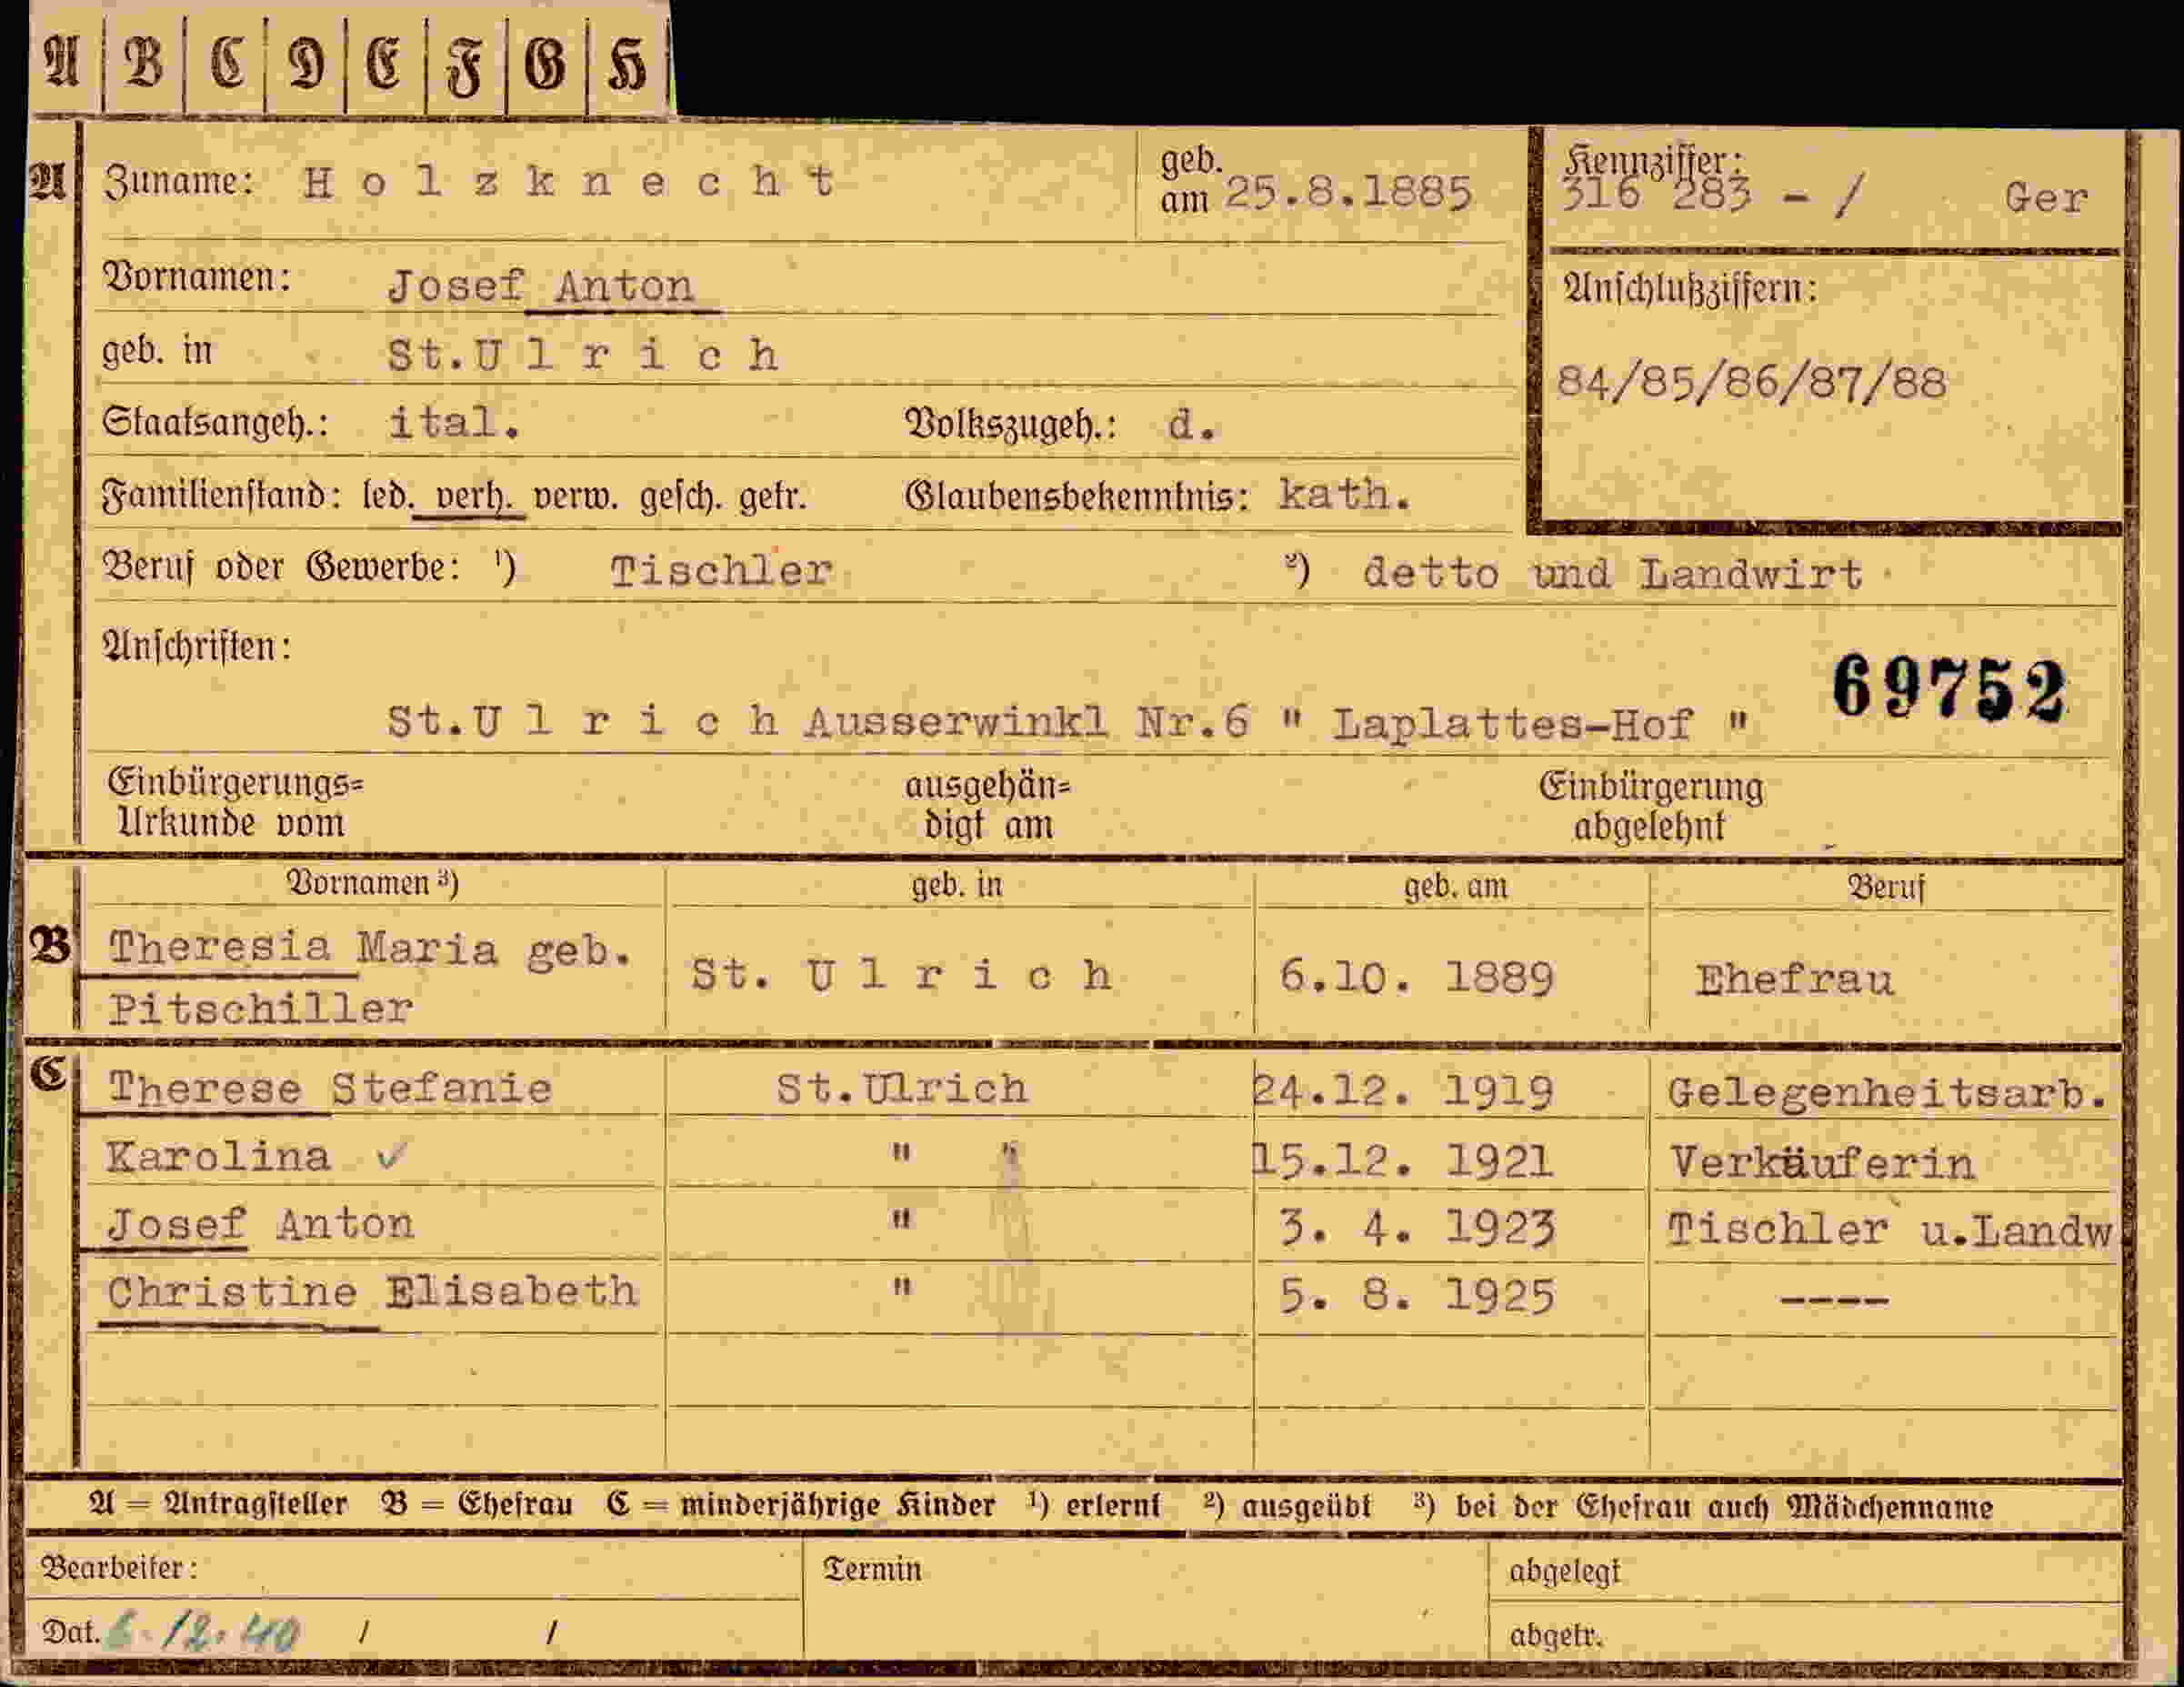 A B C D E F G H
A Zuname: Holzknecht geb. am 25.8.1885
Kennziffer: 316 283 - / Ger
Vornamen: Josef Anton
Anschlußziffern:
geb. in St.Ulrich
84/85/86/87/88
Staatsangeh.: ital. Volkszugeh.: d.
Familienstand: led. verh. verw. gesch. getr. Glaubensbekenntnis: kath.
Beruf oder Gewerbe: ¹) Tischler ²) detto und Landwirt
Anschriften:
69752
St.Ulrich Ausserwinkl Nr.6 " Laplattes-Hof "
Einbürgerungs= ausgehän= Einbürgerung
Urkunde vom digt am abgelehnt
Vornamen ³) geb. in geb. am Beruf
B Theresia Maria geb.
Pitschiller St. Ulrich 6.10. 1889 Ehefrau
C Therese Stefanie St.Ulrich 24.12. 1919 Gelegenheitsarb.
Karolina ✓ " " 15.12. 1921 Verkäuferin
Josef Anton " 3. 4. 1923 Tischler u.Landw
Christine Elisabeth " 5. 8. 1925 ----
A = Antragsteller B = Ehefrau C = minderjährige Kinder ¹) erlernt ²) ausgeübt ³) bei der Ehefrau auch Mädchenname
Bearbeiter: Termin abgelegt
Dat. 6.12.40 / / abgetr.